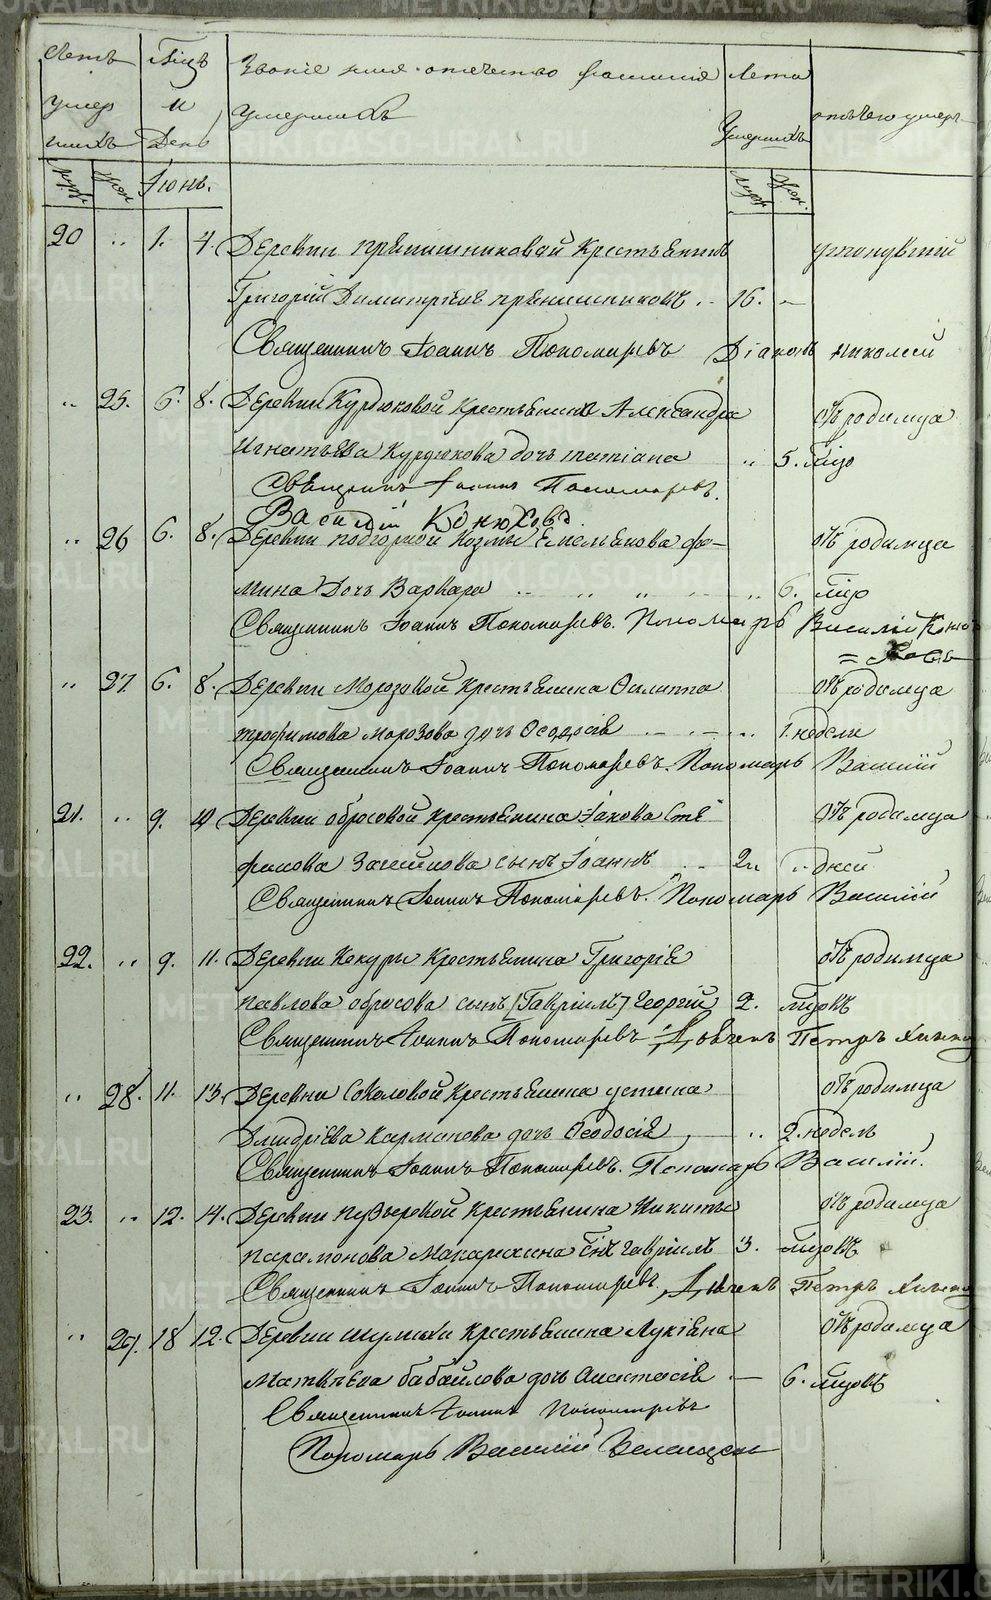 Летъ Мцъ Званіе имя отечество фамилія Лета
умер и умершихъ Умершихъ отъ чего умеръ
шихъ День
муж. жен. Іюнь. муж. жен.
20 .. 1. 4. Деревни Пренишниковой Крестьянинъ утонувшій
Григорій Димитріевъ Пренишниковъ .. 16. —
Священникъ Іоаннъ Пономаревъ Діаконъ Николай
.. 25. 6. 8. Деревни Курдюковой Крестьянина Александра отъ родимца
Игнатьева Курдюкова дочь Татіана .. 5. Мцо
Священникъ Іоаннъ Пономаревъ.
Василій Конюховъ.
.. 26 6. 8. Деревни Подгорной Козмы Емельянова Фо- отъ родимца
мина Дочь Варвара .. .. .. .. 6. Мцо
Священникъ Іоаннъ Пономаревъ. Пономарь Василій Коню
= ховъ
.. 27 6. 8. Деревни Морозовой Крестьянина Филиппа отъ родимца
Трофимова Морозова дочь Феодосія 1. недели
Священникъ Іоаннъ Пономаревъ. Пономарь Василій
21. .. 9. 10 Деревни Обросовой Крестьянина Іакова Сте отъ родимца
фанова сынъ Іоаннъ .. 2 .. дней
Священникъ Іоаннъ Пономаревъ. Пономарь Василій
22. .. 9. 11. Деревни Кекуры Крестьянина Григорія отъ родимца
Павлова Обросова сынъ [Гавріилъ] Георгій 2. Мцовъ
Священникъ Іоаннъ Пономаревъ Дьячекъ Петръ
.. 28. 11. 13. Деревни Соколовой Крестьянина Устина отъ родимца
Дмидріева Карманова дочь Феодосія .. 2. недель
Священникъ Іоаннъ Пономаревъ. Пономарь Василій.
23. .. 12. 14. Деревни Пузыревой Крестьянина Никиты отъ родимца
Парамонова Макарихина Снъ Гавріилъ 3. Мцовъ
Священникъ Іоаннъ Пономаревъ, Дьячекъ Петръ
.. 29. 18 12. Деревни Шумихи Крестьянина Лукіяна отъ родимца
Матвѣева Бабайлова дочь Анастасія — 6. Мцовъ
Священникъ Іоаннъ Пономаревъ
Пономарь Василій